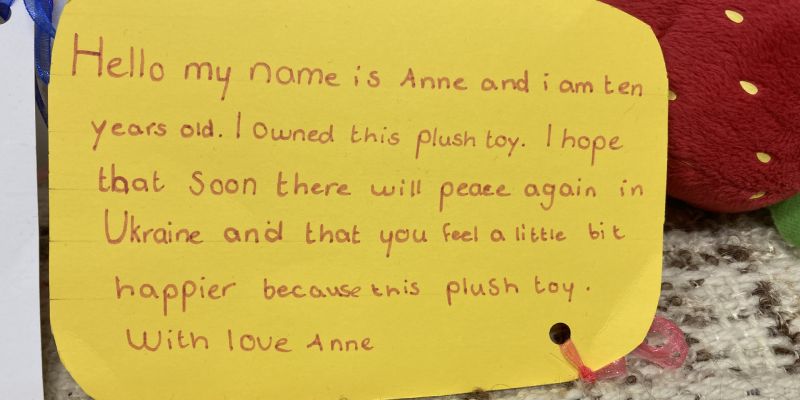 Hello my name is Anne and i am ten
years old. I owned this plush toy. I hope
that soon there will peace again in
Ukraine and that you feel a little bit
happier because this plush toy.
With love Anne